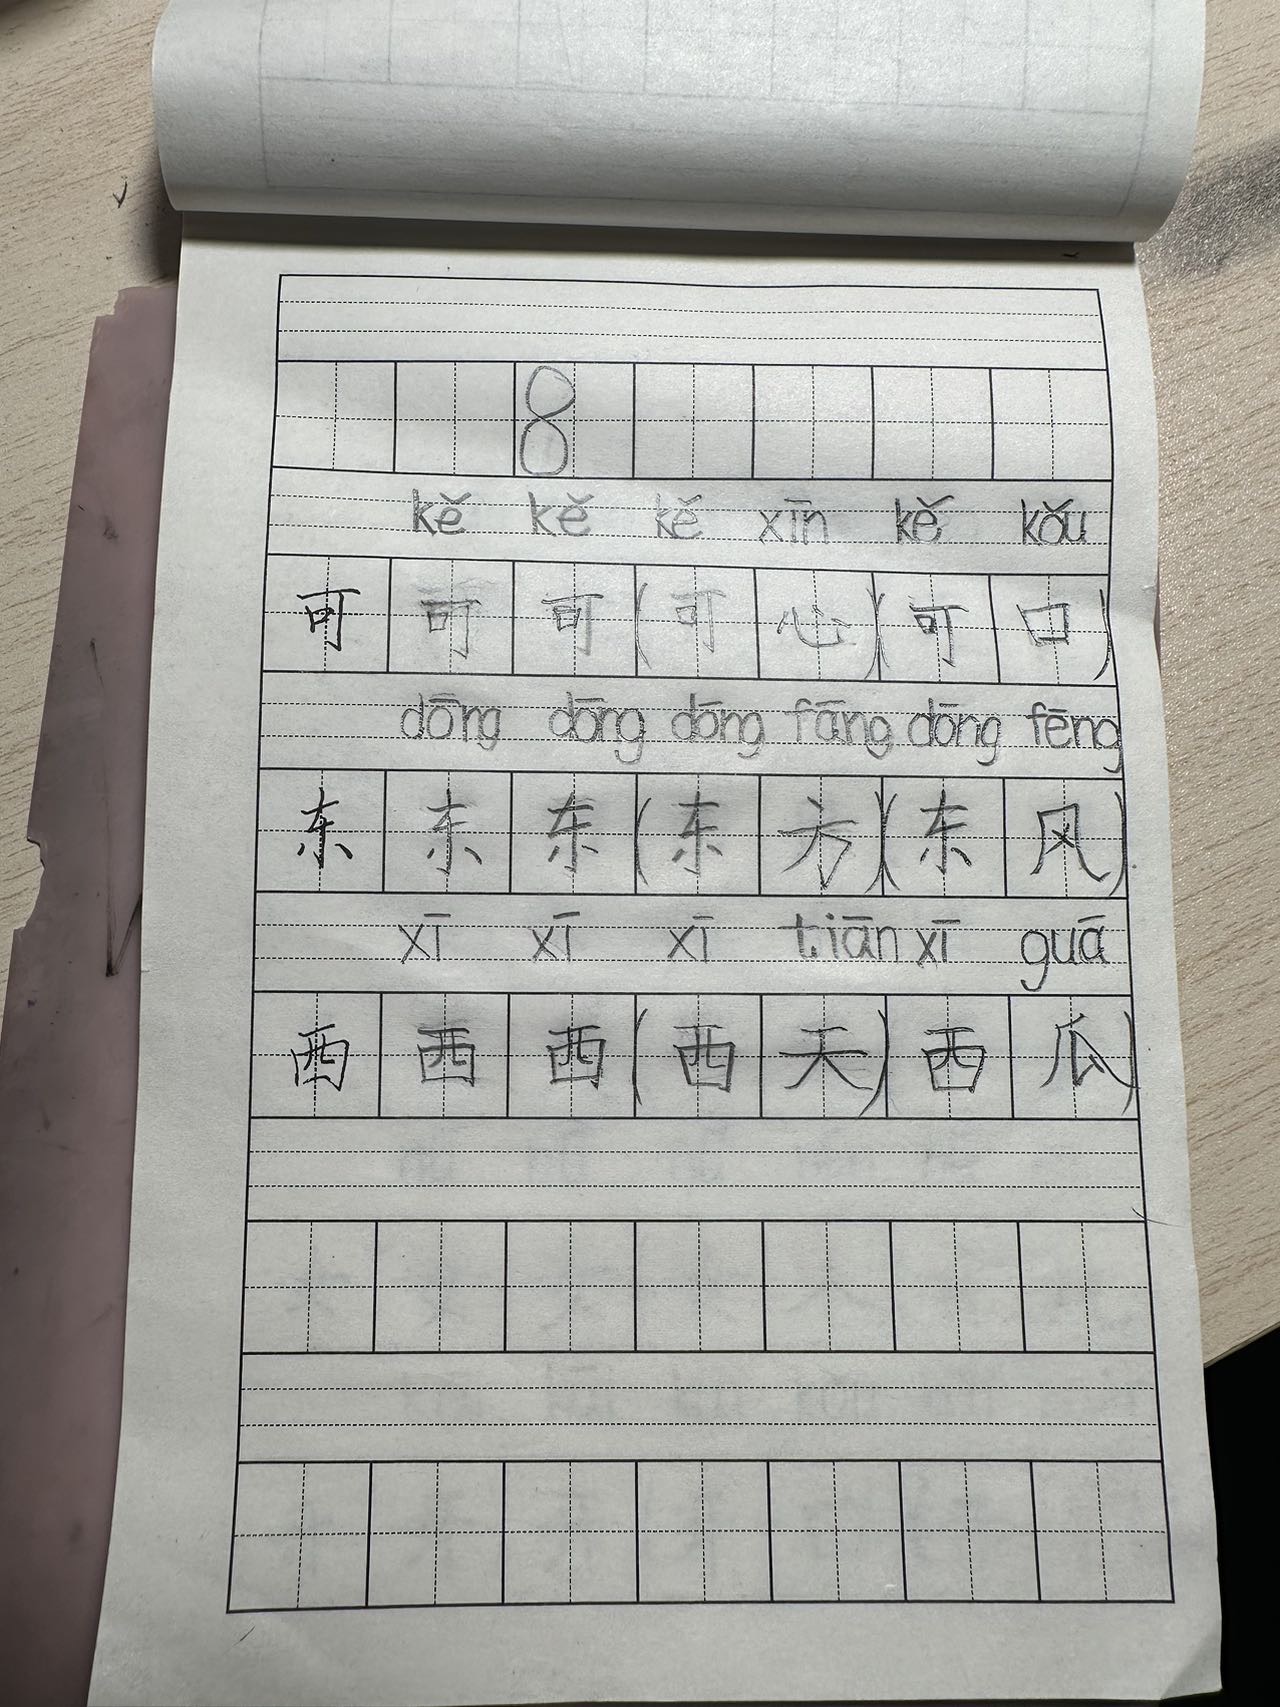 8
kě kě kě xīn kě kǒu
可 可 可 (可 心) (可 口)
dōng dōng dōng fāng dōng fēng
东 东 东 (东 方) (东 风)
xī xī xī tiān xī guā
西 西 西 (西 天) 西 瓜)